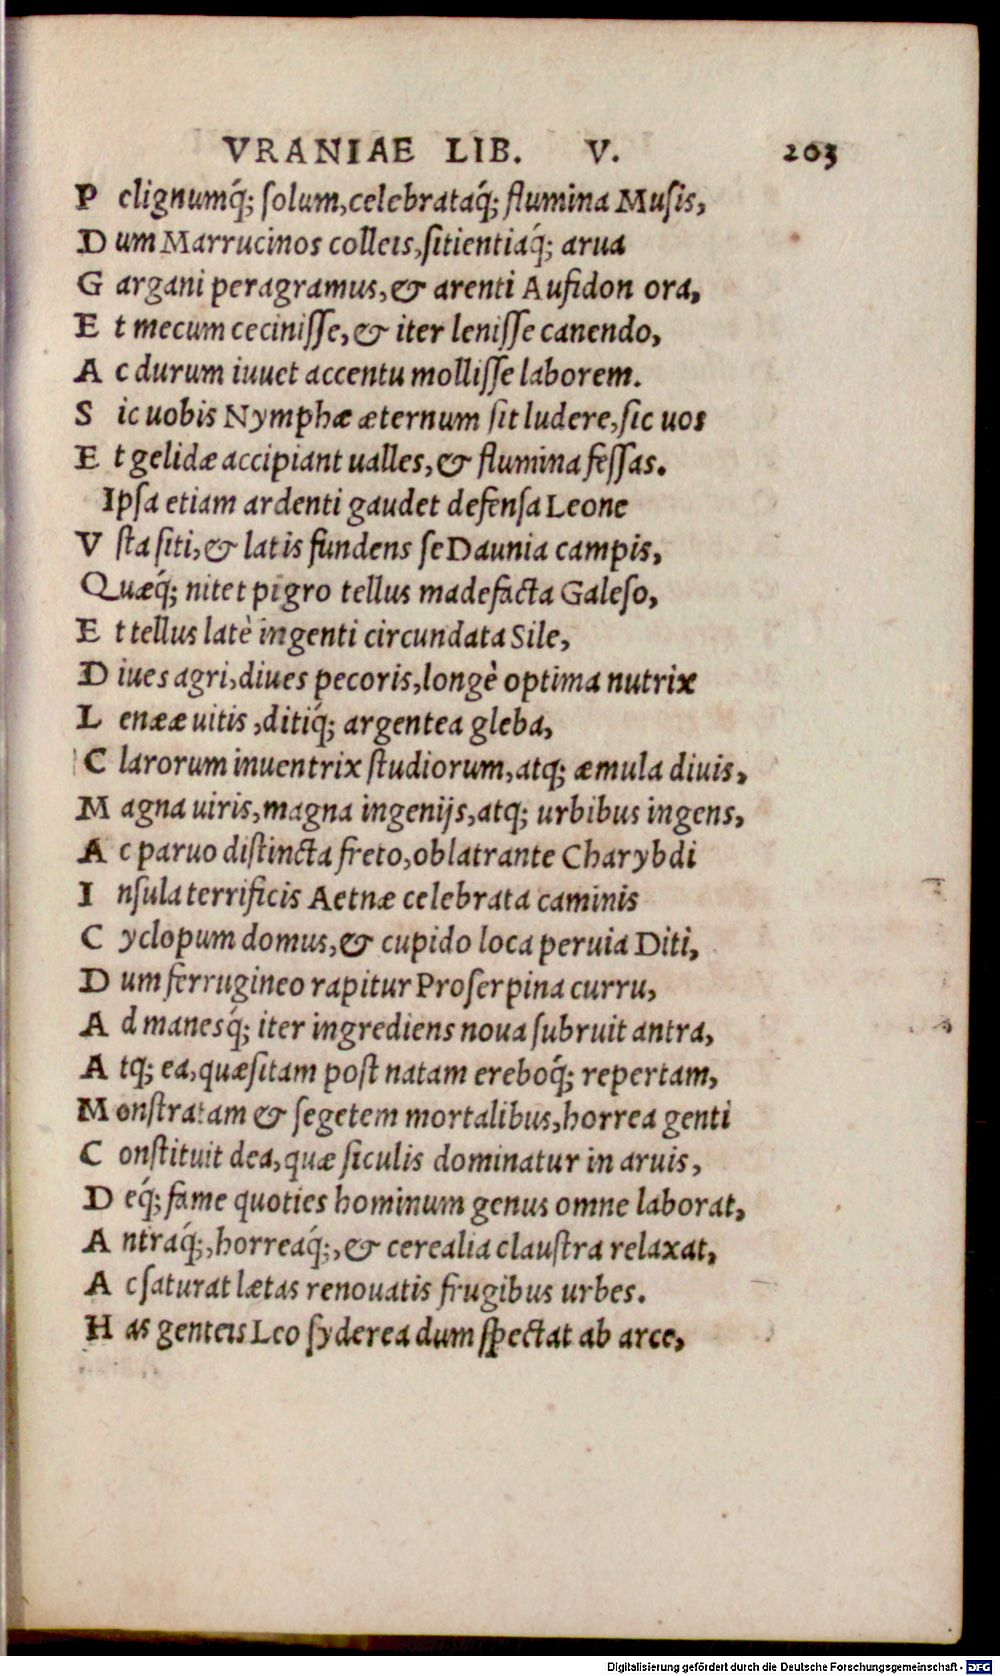 VRANIAE LIB. V. 203
P elignumq́; ſolum,celebrataq́; flumina Muſis,
D um Marrucinos colleis,ſitientiaq́; arua
G argani peragramus,& arenti Aufidon ora,
E t mecum ceciniſſe,& iter leniſſe canendo,
A c durum iuuet accentu molliſſe laborem.
S ic uobis Nymphæ æternum ſit ludere,ſic uos
E t gelidæ accipiant ualles,& flumina feſſas.
Ipſa etiam ardenti gaudet defenſa Leone
V ſta ſiti,& latis fundens ſe Daunia campis,
Quæq́; nitet pigro tellus madefacta Galeſo,
E t tellus latè ingenti circundata Sile,
D iues agri,diues pecoris,longè optima nutrix
L enææ uitis ,ditiq́; argentea gleba,
C larorum inuentrix ſtudiorum,atq; æmula diuis,
M agna uiris,magna ingenijs,atq; urbibus ingens,
A c paruo diſtincta freto,oblatrante Charybdi
I nſula terrificis Aetnæ celebrata caminis
C yclopum domus,& cupido loca peruia Diti,
D um ferrugineo rapitur Proſerpina curru,
A d manesq́; iter ingrediens noua ſubruit antra,
A tq; ea,quæſitam poſt natam ereboq́; repertam,
M onſtratam & ſegetem mortalibus,horrea genti
C onſtituit dea,quæ ſiculis dominatur in aruis,
D eq́; fame quoties hominum genus omne laborat,
A ntraq́;,horreaq́;,& cerealia clauſtra relaxat,
A c ſaturat lætas renouatis frugibus urbes.
H as genteis Leo ſyderea dum ſpectat ab arce,
Digitalisierung gefördert durch die Deutsche Forschungsgemeinschaft - DFG